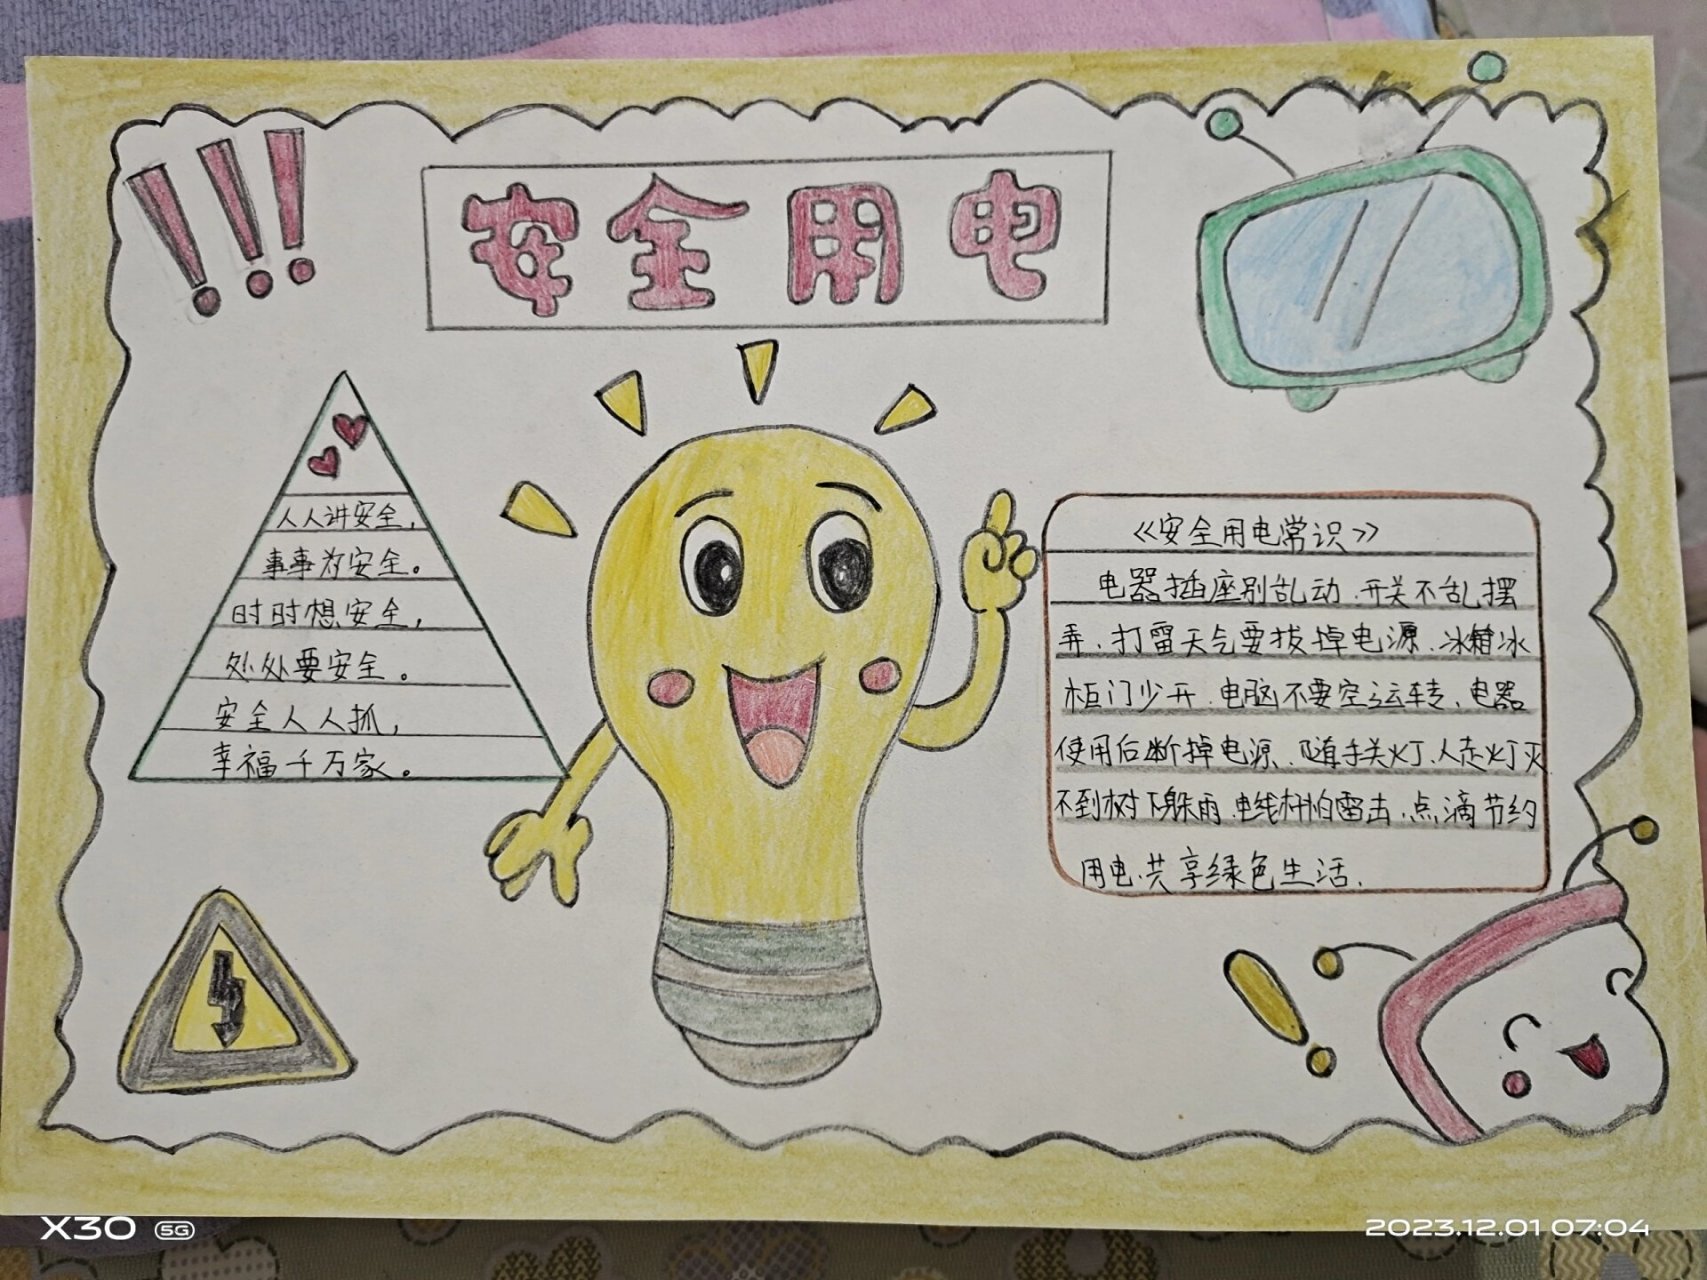 安全用电
人人讲安全，
事事为安全。
时时想安全，
处处要安全。
安全人人抓，
幸福千万家。
《安全用电常识》
电器插座别乱动、开关不乱摆
弄、打雷天气要拔掉电源、冰箱冰
柜门少开、电脑不要空运转、电器
使用后断掉电源、随手关灯、人走灯灭
不到树下躲雨、电线杆怕雷击、点滴节约
用电、共享绿色生活、
X30 5G
2023.12.01 07:04